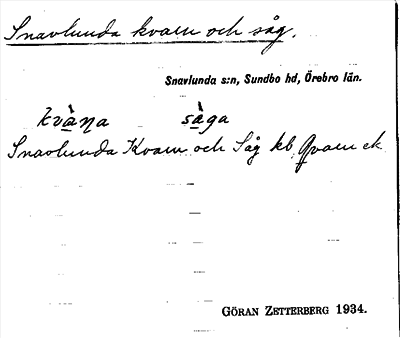 Snavlunda kvarn och såg.
Snavlunda s:n, Sundbo hd, Örebro län.
kvàṇa sàga
Snavlunda Kvarn och Såg kb, Qvarn ek
GÖRAN ZETTERBERG 1934.